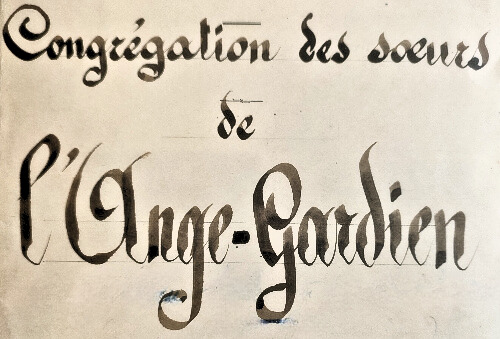 Congrégation des sœurs
de
l'Ange-Gardien